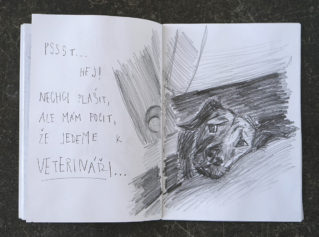 PSSST...
HEJ!
NECHCI PLAŠIT,
ALE MÁM POCIT,
ŽE JEDEME K
VETERINÁŘI...